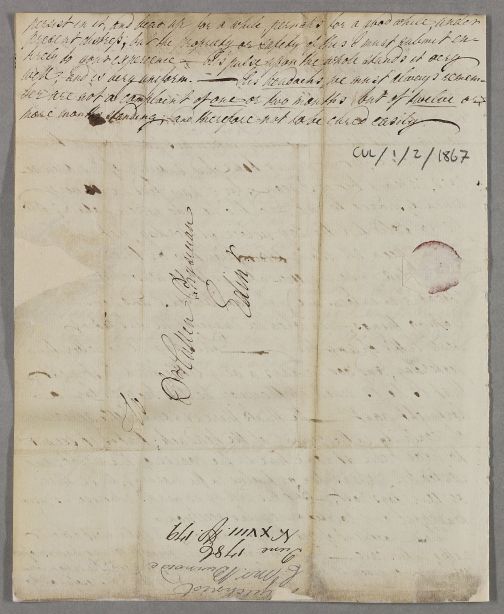 persist in it, and bear up for a while perhaps for a good while under
present distress; but the propriety or safety of this I must submit en-
tirely to your experience — His pulse upon the whole stands it very
well & and is very uniform. — His headachs we must always remem-
ber are not a complaint of one or two months but of twelve or
more months standing, and therefore not to be cured easily
CUL/1/2/1867
To
Dr Cullen Physician
Edinr
June 1786
N. XVIII. 179